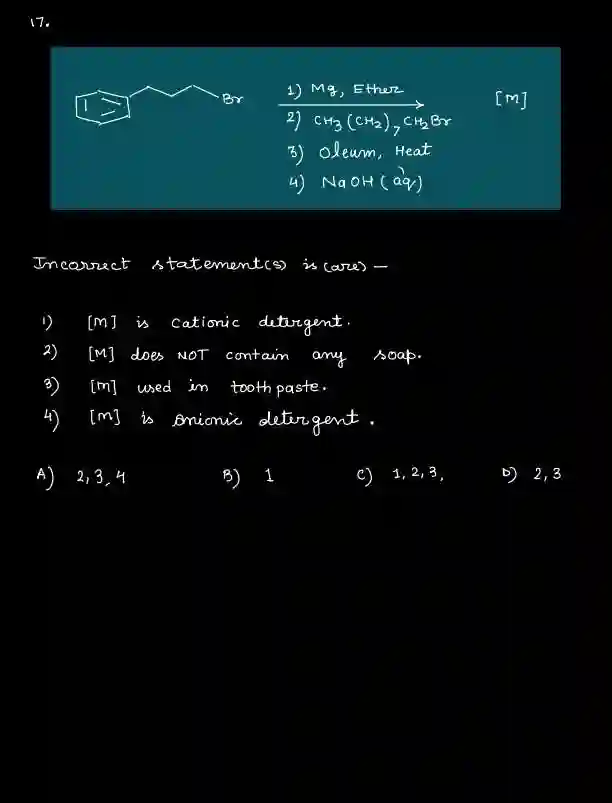 17.
Br
1) Mg, Ether
[M]
2) CH3(CH2)7CH2Br
3) Oleum, Heat
4) NaOH (aq)
Incorrect statement(s) is (are) —
1) [M] is cationic detergent.
2) [M] does NOT contain any soap.
3) [M] used in toothpaste.
4) [M] is anionic detergent.
A) 2, 3, 4 B) 1 C) 1, 2, 3, D) 2, 3